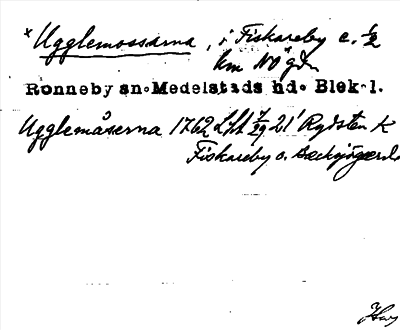 * Ugglemossarna, i Fiskareby c. 1/2
km NO gdn
Ronneby sn. Medelstads hd. Blek.l.
Ugglemåserna 1762 Lfl 7/29 21' Rydsten K
Fiskareby o. Backsjögärd